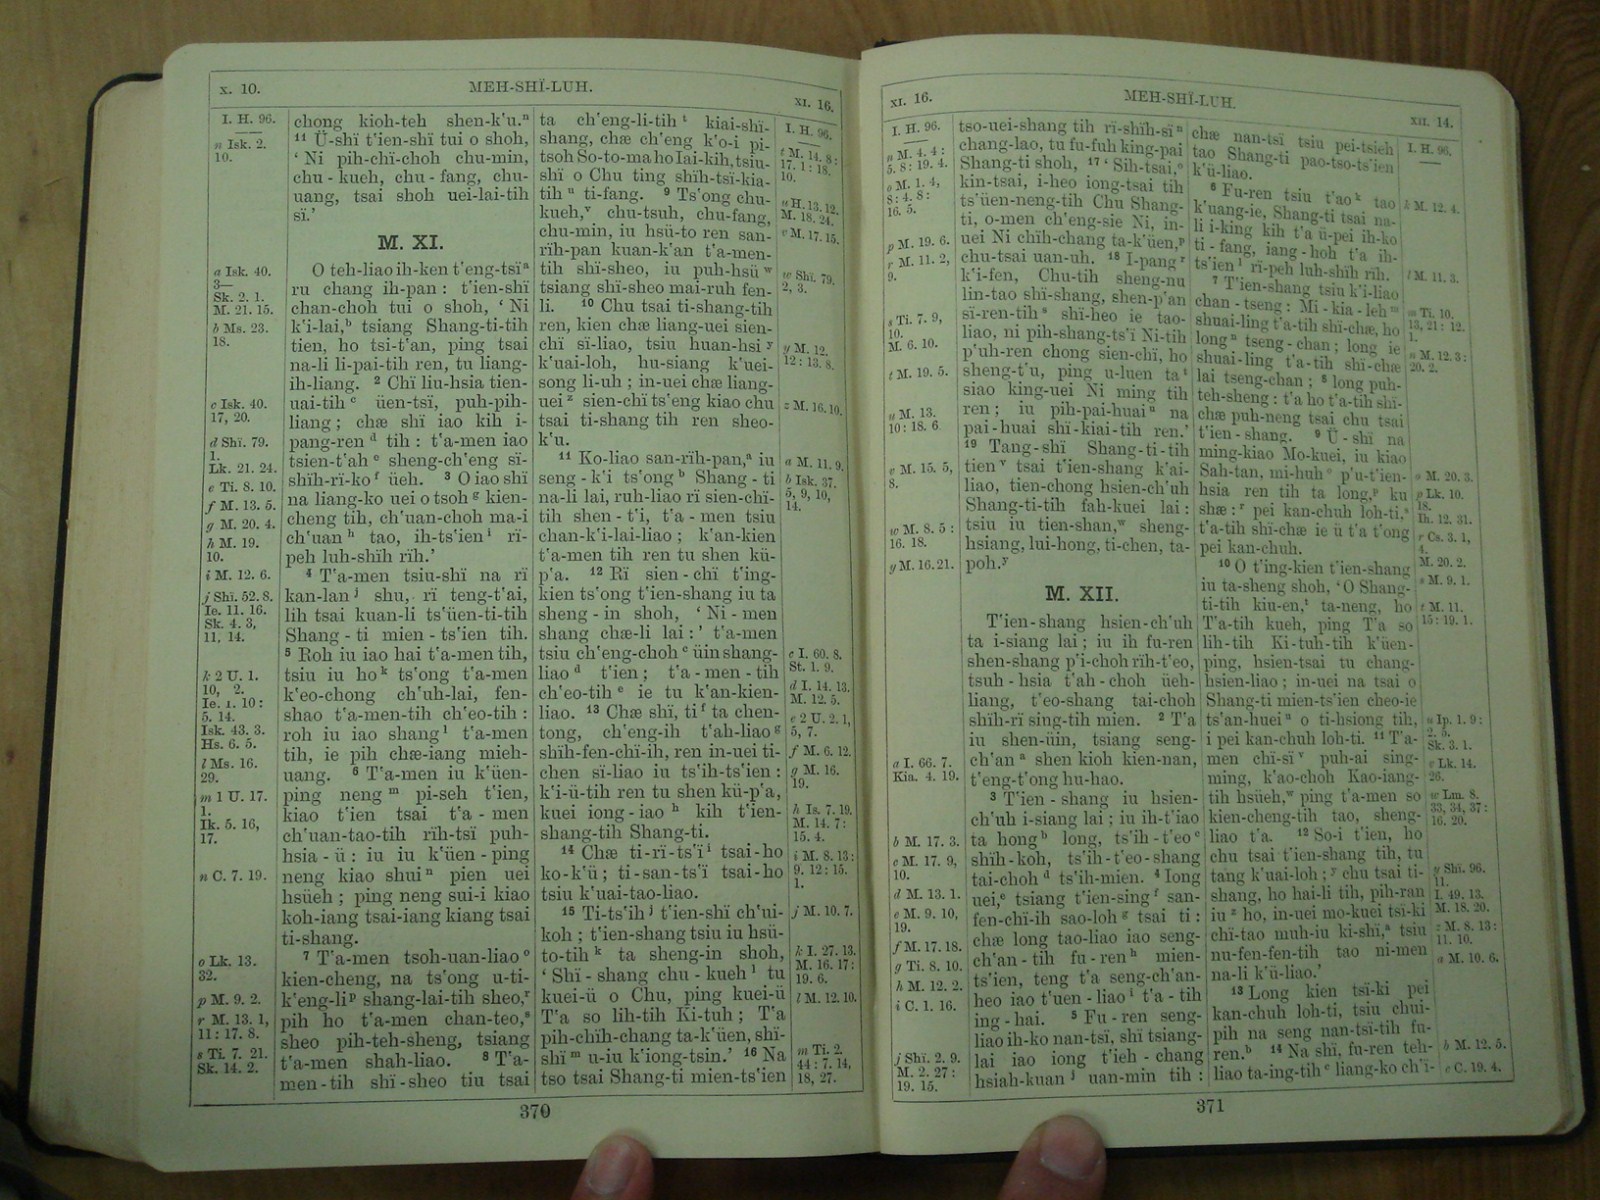 x. 10.
MEH-SHÏ-LUH.
XI. 16.
I. H. 96.
n Isk. 2.
10.
a Isk. 40.
3—
Sk. 2. 1.
M. 21. 15.
b Ms. 23.
18.
c Isk. 40.
17, 20.
d Shï. 79.
1.
Lk. 21. 24.
e Ti. 8. 10.
f M. 13. 5.
g M. 20. 4.
h M. 19.
10.
i M. 12. 6.
j Shï. 52. 8.
Ie. 11. 16.
Sk. 4. 3,
11, 14.
k 2 U. 1.
10, 2.
Ie. 1. 10:
5. 14.
Isk. 43. 3.
Hs. 6. 5.
l Ms. 16.
29.
m 1 U. 17.
1.
Ik. 5. 16,
17.
n C. 7. 19.
o Lk. 13.
32.
p M. 9. 2.
r M. 13. 1,
11: 17. 8.
s Ti. 7. 21.
Sk. 14. 2.
chong kioh-teh shen-k'u.ⁿ
¹¹ Ü-shï t'ien-shï tui o shoh,
' Ni pih-chï-choh chu-min,
chu-kueh, chu-fang, chu-
uang, tsai shoh uei-lai-tih
sï.'
M. XI.
O teh-liao ih-ken t'eng-tsïᵃ
ru chang ih-pan: t'ien-shï
chan-choh tui o shoh, ' Ni
k'i-lai,ᵇ tsiang Shang-ti-tih
tien, ho tsi-t'an, ping tsai
na-li li-pai-tih ren, tu liang-
ih-liang. ² Chï liu-hsia tien-
uai-tihᶜ üen-tsï, puh-pih-
liang; chæ shï iao kih i-
pang-renᵈ tih: t'a-men iao
tsien-t'ahᵉ sheng-ch'eng sï-
shïh-rï-koᶠ üeh. ³ O iao shï
na liang-ko uei o tsohᵍ kien-
cheng tih, ch'uan-choh ma-i
ch'uanʰ tao, ih-ts'ienⁱ rï-
peh luh-shïh rïh.'
⁴ T'a-men tsiu-shï na rï
kan-lanʲ shu, rï teng-t'ai,
lih tsai kuan-li ts'üen-ti-tih
Shang-ti mien-ts'ien tih.
⁵ Roh iu iao hai t'a-men tih,
tsiu iu hoᵏ ts'ong t'a-men
k'eo-chong ch'uh-lai, fen-
shao t'a-men-tih ch'eo-tih:
roh iu iao shangˡ t'a-men
tih, ie pih chæ-iang mieh-
uang. ⁶ T'a-men iu k'üen-
ping nengᵐ pi-seh t'ien,
kiao t'ien tsai t'a-men
ch'uan-tao-tih rïh-tsï puh-
hsia-ü: iu iu k'üen-ping
neng kiao shuiⁿ pien uei
hsüeh; ping neng sui-i kiao
koh-iang tsai-iang kiang tsai
ti-shang.
⁷ T'a-men tsoh-uan-liaoᵒ
kien-cheng, na ts'ong u-ti-
k'eng-liᵖ shang-lai-tih sheo,ʳ
pih ho t'a-men chan-teo,ˢ
sheo pih-teh-sheng, tsiang
t'a-men shah-liao. ⁸ T'a-
men-tih shï-sheo tiu tsai
ta ch'eng-li-tihᵗ kiai-shï-
shang, chæ ch'eng k'o-i pi-
tsoh So-to-ma ho Iai-kih, tsiu-
shï o Chu ting shïh-tsï-kia-
tihᵘ ti-fang. ⁹ Ts'ong chu-
kueh,ᵛ chu-tsuh, chu-fang,
chu-min, iu hsü-to ren san-
rïh-pan kuan-k'an t'a-men-
tih shï-sheo, iu puh-hsüʷ
tsiang shï-sheo mai-ruh fen-
li. ¹⁰ Chu tsai ti-shang-tih
ren, kien chæ liang-uei sien-
chï sï-liao, tsiu huan-hsiʸ
k'uai-loh, hu-siang k'uei-
song li-uh; in-uei chæ liang-
ueiᶻ sien-chï ts'eng kiao chu
tsai ti-shang-tih ren sheo-
k'u.
¹¹ Ko-liao san-rïh-pan,ᵃ iu
seng-k'i ts'ongᵇ Shang-ti
na-li lai, ruh-liao rï sien-chï-
tih shen-t'i, t'a-men tsiu
chan-k'i-lai-liao; k'an-kien
t'a-men tih ren tu shen kü-
p'a. ¹² Rï sien-chï t'ing-
kien ts'ong t'ien-shang iu ta
sheng-in shoh, ' Ni-men
shang chæ-li lai:' t'a-men
tsiu ch'eng-chohᶜ üin shang-
liaoᵈ t'ien; t'a-men-tih
ch'eo-tihᵉ ie tu k'an-kien-
liao. ¹³ Chæ shï, tiᶠ ta chen-
tong, ch'eng-ih t'ah-liaoᵍ
shïh-fen-chï-ih, ren in-uei ti-
chen sï-liao iu ts'ih-ts'ien:
k'i-ü-tih ren tu shen kü-p'a,
kuei iong-iaoʰ kih t'ien-
shang-tih Shang-ti.
¹⁴ Chæ ti-rï-ts'ïⁱ tsai-ho
ko-k'ü; ti-san-ts'ï tsai-ho
tsiu k'uai-tao-liao.
¹⁵ Ti-ts'ihʲ t'ien-shï ch'ui-
koh; t'ien-shang tsiu iu hsü-
to-tihᵏ ta sheng-in shoh,
' Shï-shang chu-kuehˡ tu
kuei-ü o Chu, ping kuei-ü
T'a so lih-tih Ki-tuh; T'a
pih-chïh-chang ta-k'üen, shï-
shïᵐ u-iu k'iong-tsin.' ¹⁶ Na
tso tsai Shang-ti mien-ts'ien
I. H. 96.
t M. 14. 8:
17. 1: 18.
10.
u H. 13. 12.
M. 18. 24.
v M. 17. 15.
w Shï. 79.
2, 3.
y M. 12.
12: 13. 8.
z M. 16. 10.
a M. 11. 9.
b Isk. 37.
5, 9, 10,
14.
c I. 60. 8.
St. 1. 9.
d I. 14. 13.
M. 12. 5.
e 2 U. 2. 1,
5, 7.
f M. 6. 12.
g M. 16.
19.
h Is. 7. 19.
M. 14. 7:
15. 4.
i M. 8. 13:
9. 12: 15.
1.
j M. 10. 7.
k I. 27. 13.
M. 16. 17:
19. 6.
l M. 12. 10.
m Ti. 2.
44: 7. 14,
18, 27.
370
XI. 16.
MEH-SHÏ-LUH.
XII. 14.
I. H. 96.
n M. 4. 4:
5. 8: 19. 4.
o M. 1. 4,
8: 4. 8:
16. 5.
p M. 19. 6.
r M. 11. 2,
9.
s Ti. 7. 9,
10.
M. 6. 10.
t M. 19. 5.
u M. 13.
10: 18. 6.
v M. 15. 5,
8.
w M. 8. 5:
16. 18.
y M. 16. 21.
a I. 66. 7.
Kia. 4. 19.
b M. 17. 3.
c M. 17. 9,
10.
d M. 13. 1.
e M. 9. 10,
19.
f M. 17. 18.
g Ti. 8. 10.
h M. 12. 2.
i C. 1. 16.
j Shï. 2. 9.
M. 2. 27:
19. 15.
tso-uei-shang tih rï-shïh-sïⁿ
chang-lao, tu fu-fuh king-pai
Shang-ti shoh, ¹⁷ ' Sih-tsai,ᵒ
kin-tsai, i-heo iong-tsai tih
ts'üen-neng-tih Chu Shang-
ti, o-men ch'eng-sie Ni, in-
uei Ni chïh-chang ta-k'üen,ᵖ
chu-tsai uan-uh. ¹⁸ I-pangʳ
k'i-fen, Chu-tih sheng-nu
lin-tao shï-shang, shen-p'an
sï-ren-tihˢ shï-heo ie tao-
liao, ni pih-shang-ts'ï Ni-tih
p'uh-ren chong sien-chï, ho
sheng-t'u, ping u-luen taᵗ
siao king-uei Ni ming tih
ren; iu pih-pai-huaiᵘ na
pai-huai shï-kiai-tih ren.'
¹⁹ Tang-shï Shang-ti-tih
tienᵛ tsai t'ien-shang k'ai-
liao, tien-chong hsien-ch'uh
Shang-ti-tih fah-kuei lai:
tsiu iu tien-shan,ʷ sheng-
hsiang, lui-hong, ti-chen, ta-
poh.ʸ
M. XII.
T'ien-shang hsien-ch'uh
ta i-siang lai; iu ih fu-ren
shen-shang p'i-choh rïh-t'eo,
tsuh-hsia t'ah-choh üeh-
liang, t'eo-shang tai-choh
shïh-rï sing-tih mien. ² T'a
iu shen-üin, tsiang seng-
ch'anᵃ shen kioh kien-nan,
t'eng-t'ong hu-hao.
³ T'ien-shang iu hsien-
ch'uh i-siang lai; iu ih-t'iao
ta hongᵇ long, ts'ih-t'eoᶜ
shïh-koh, ts'ih-t'eo-shang
tai-chohᵈ ts'ih-mien. ⁴ Iong
uei,ᵉ tsiang t'ien-singᶠ san-
fen-chï-ih sao-lohᵍ tsai ti:
chæ long tao-liao iao seng-
ch'an-tih fu-renʰ mien-
ts'ien, teng t'a seng-ch'an-
heo iao t'uen-liaoⁱ t'a-tih
ing-hai. ⁵ Fu-ren seng-
liao ih-ko nan-tsï, shï tsiang-
lai iao iong t'ieh-chang
hsiah-kuanʲ uan-min tih:
chæ nan-tsï tsiu pei-tsieh
tao Shang-ti pao-tso-ts'ien
k'ü-liao.
⁶ Fu-ren tsiu t'aoᵏ tao
k'uang-ie, Shang-ti tsai na-
li i-king kih t'a ü-pei ih-ko
ti-fang, iang-hoh t'a ih-
ts'ienˡ rï-peh luh-shïh rïh.
⁷ T'ien-shang tsiu k'i-liao
chan-tseng: Mi-kia-lehᵐ
shuai-ling t'a-tih shï-chæ, ho
longⁿ tseng-chan; long ie
shuai-ling t'a-tih shï-chæ
lai tseng-chan; ⁸ long puh-
teh-sheng: t'a ho t'a-tih shï-
chæ puh-neng tsai chu tsai
t'ien-shang. ⁹ Ü-shï na
ming-kiao Mo-kuei, iu kiao
Sah-tan, mi-huhᵒ p'u-t'ien-
hsia ren tih ta long,ᵖ ku
shæ:ʳ pei kan-chuh loh-ti,ˢ
t'a-tih shï-chæ ie ü t'a t'ong
pei kan-chuh.
¹⁰ O t'ing-kien t'ien-shang
iu ta-sheng shoh, ' O Shang-
ti-tih kiu-en,ᵗ ta-neng, ho
T'a-tih kueh, ping T'a so
lih-tih Ki-tuh-tih k'üen-
ping, hsien-tsai tu chang-
hsien-liao; in-uei na tsai o
Shang-ti mien-ts'ien cheo-ie
ts'an-hueiᵘ o ti-hsiong tih,
i pei kan-chuh loh-ti. ¹¹ T'a-
men chï-sïᵛ puh-ai sing-
ming, k'ao-choh Kao-iang-
tih hsüeh,ʷ ping t'a-men so
kien-cheng-tih tao, sheng-
liao t'a. ¹² So-i t'ien, ho
chu tsai t'ien-shang tih, tu
tang k'uai-loh;ʸ chu tsai ti-
shang, ho hai-li tih, pih-ran
iuᶻ ho, in-uei mo-kuei tsï-ki
chï-tao muh-iu ki-shï,ᵃ tsiu
nu-fen-fen-tih tao ni-men
na-li k'ü-liao.'
¹³ Long kien tsï-ki pei
kan-chuh loh-ti, tsiu chui-
pih na seng nan-tsï-tih fu-
ren.ᵇ ¹⁴ Na shï, fu-ren teh-
liao ta-ing-tihᶜ liang-ko ch'ï-
I. H. 96.
k M. 12. 4.
l M. 11. 3.
m Ti. 10.
13, 21: 12.
1.
n M. 12. 3:
20. 2.
o M. 20. 3.
p Lk. 10.
18.
Ih. 12. 31.
r Cs. 3. 1,
4.
M. 20. 2.
s M. 9. 1.
t M. 11.
15: 19. 1.
u Ip. 1. 9:
2. 5.
Sk. 3. 1.
v Lk. 14.
26.
w Lm. 8.
33, 34, 37:
16. 20.
y Shï. 96.
11.
I. 49. 13.
M. 18. 20.
z M. 8. 13:
11. 10.
a M. 10. 6.
b M. 12. 5.
c C. 19. 4.
371